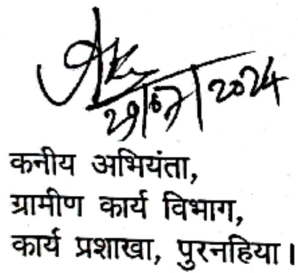 29/07/2024
कनीय अभियंता,
ग्रामीण कार्य विभाग,
कार्य प्रशाखा, पुरनहिया।